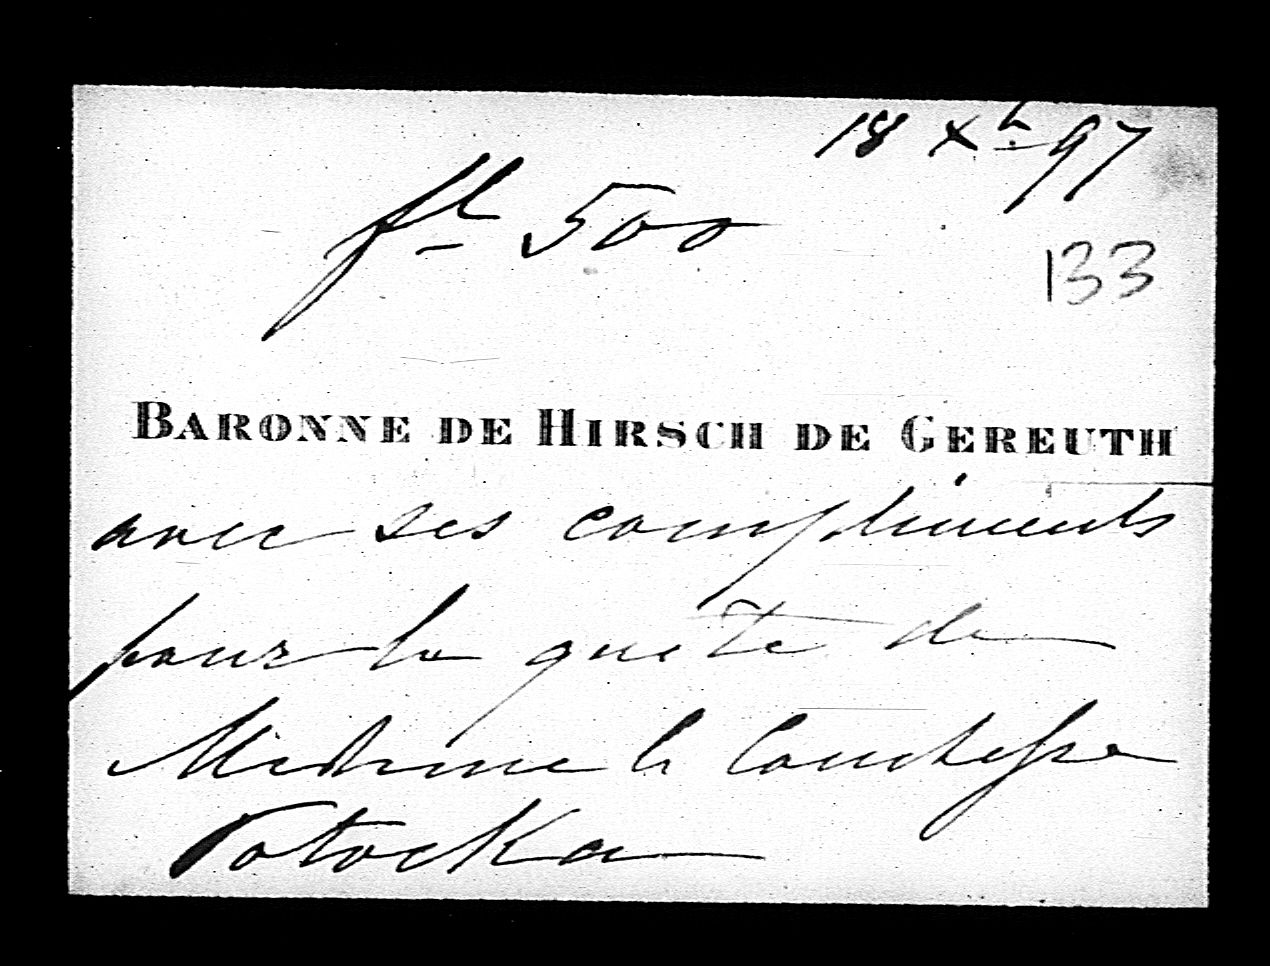 18 Xbr 97
fl 500
133
BARONNE DE HIRSCH DE GEREUTH
avec ses compliments
pour la quête de
Madame la Comtesse
Potocka